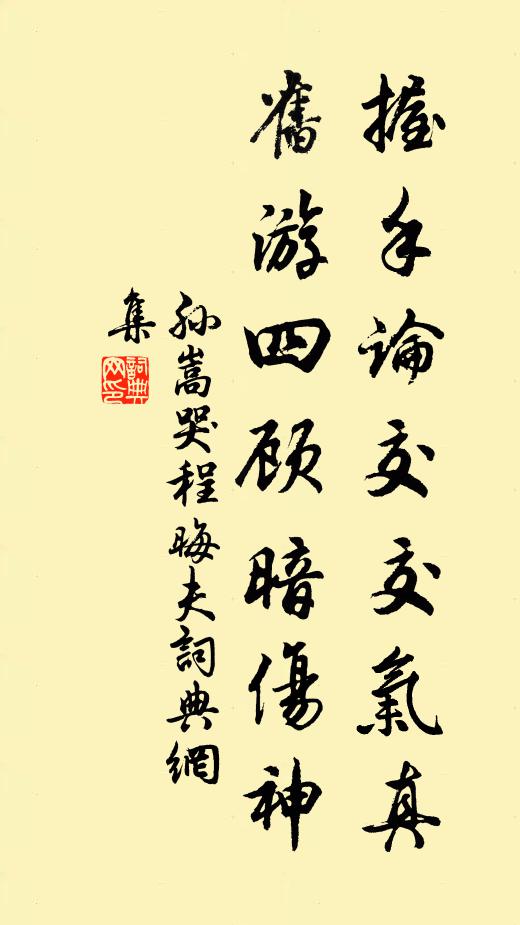 握手論交交氣真
舊游四顾暗傷神
孙嵩哭程晦夫詞典網
集
詞典
网印